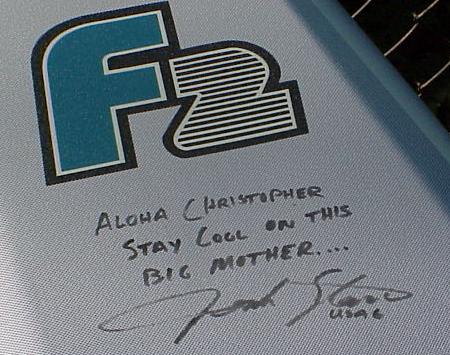 F2
ALOHA CHRISTOPHER
STAY COOL ON THIS
BIG MOTHER....